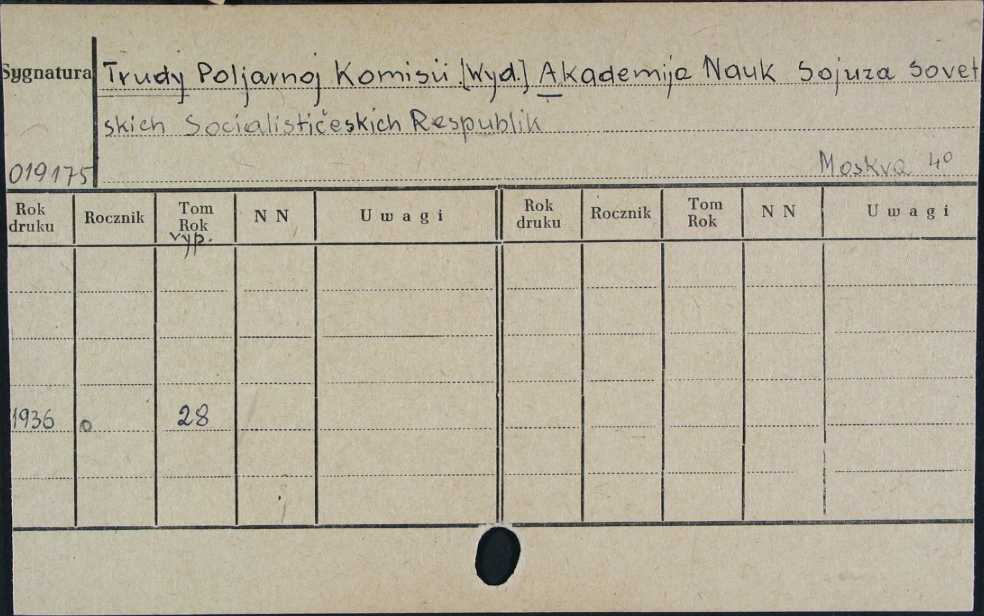 Sygnatura Trudy Poljarnoj Komisii [Wyd.] Akademija Nauk Sojuza Sovet
skich Socialističeskich Respublik
019175 Moskva 4°
Rok druku Rocznik Tom Rok vyp. N N Uwagi Rok druku Rocznik Tom Rok N N Uwagi
1936 o 28